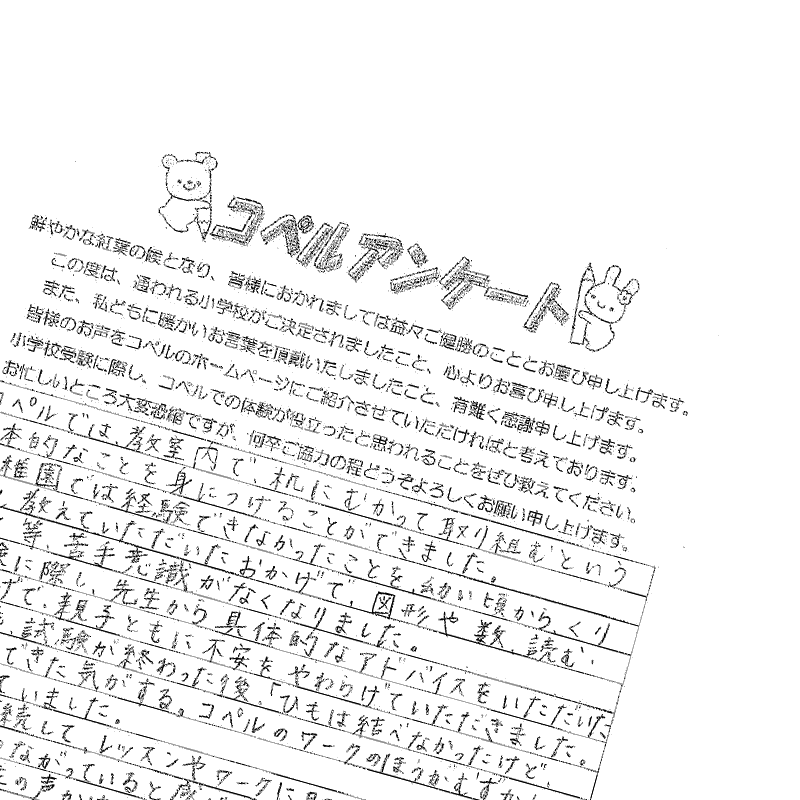 コペルアンケート
鮮やかな紅葉の候となり、皆様におかれましては益々ご健勝のこととお慶び申し上げます。
この度は、通われる小学校がご決定されましたこと、心よりお喜び申し上げます。
また、私どもに暖かいお言葉を頂戴いたしましたこと、有難く感謝申し上げます。
皆様のお声をコペルのホームページにご紹介させていただければと考えております。
小学校受験に際し、コペルでの体験が役立ったと思われることをぜひ教えてください。
お忙しいところ大変恐縮ですが、何卒ご協力の程どうぞよろしくお願い申し上げます。
コペルでは、教室内で、机にむかって取り組むという
本的なことを身につけることができました。
稚園では経験できなかったことを、幼い頃から、くり
し教えていただいたおかげで、図形や数、読む、
等、苦手意識がなくなりました。
に際し、先生から具体的なアドバイスをいただいた
げで、親子ともに不安をやわらげていただきました。
試験が終わった後、「ひもは結べなかったけど、
できた気がする。コペルのワークのほうがむずか
ていました。
続して、レッスンやワークに
ながっていると感
の声か